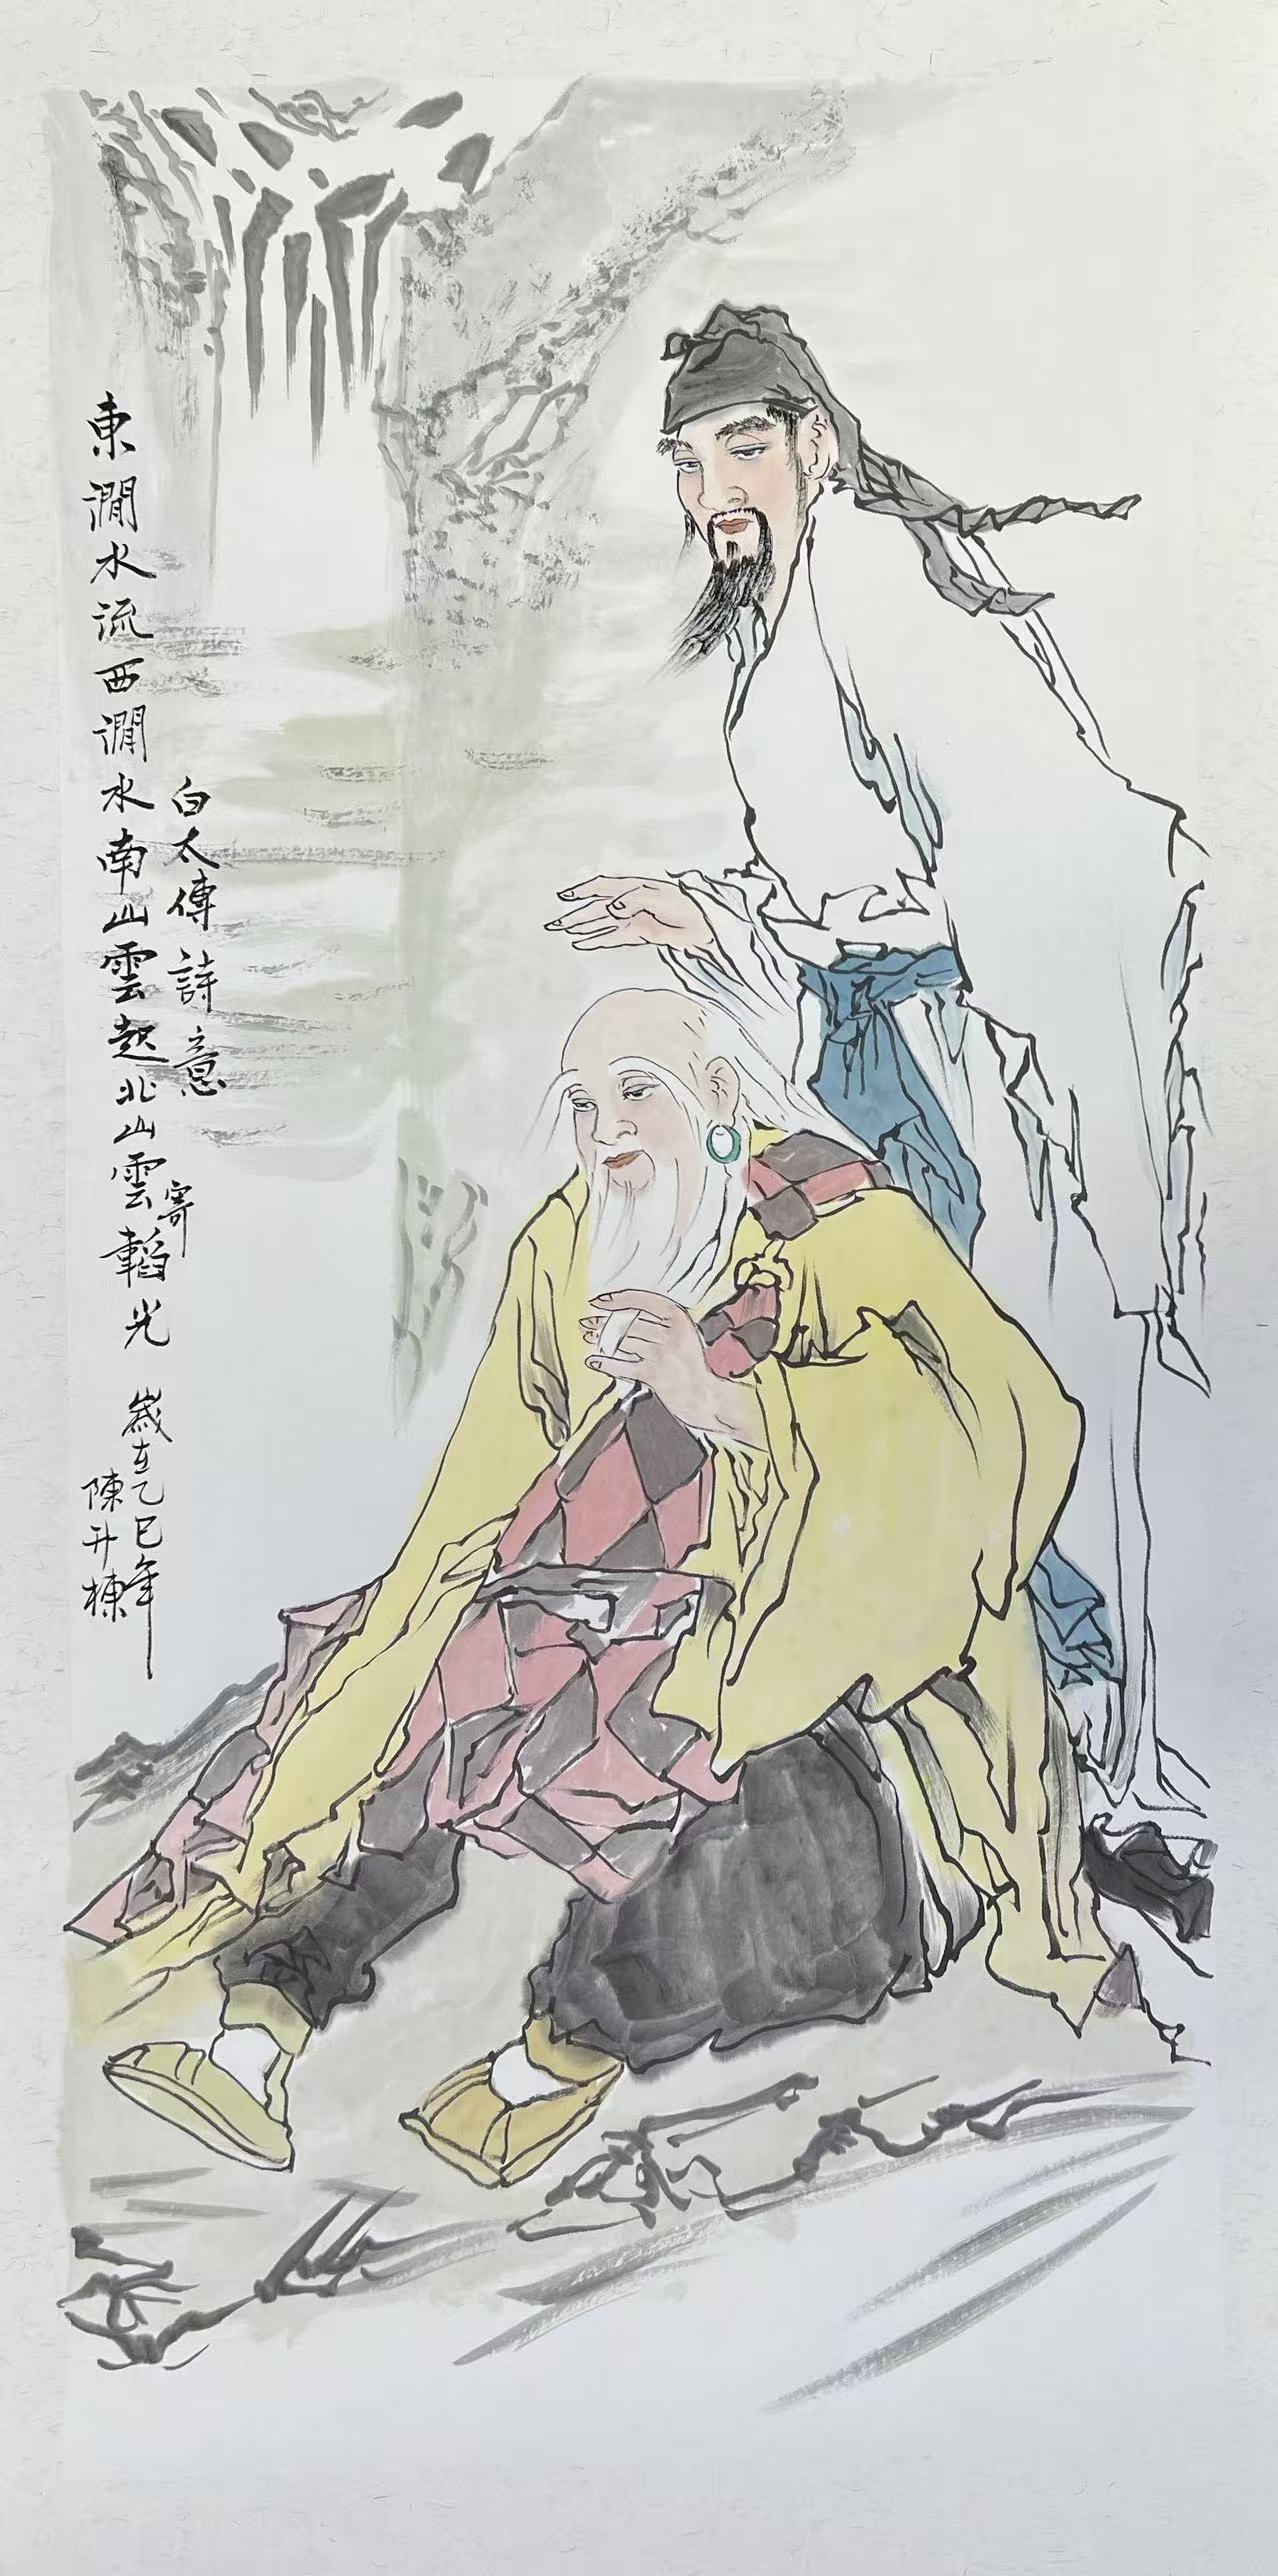 東澗水流西澗水南山雲起北山雲
寄韜光
白太傅詩意
歲在乙巳年
陳升棟